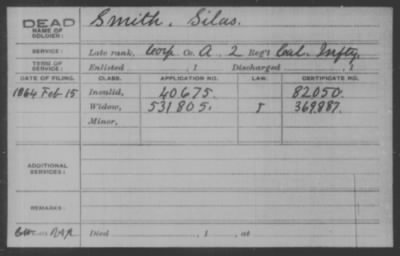 DEAD
NAME OF SOLDIER: Smith, Silas.
SERVICE: Late rank, Corp Co. A, 2 Reg't Cal. Infty.
TERM OF SERVICE: Enlisted , 1 Discharged , 1
DATE OF FILING. CLASS. APPLICATION NO. LAW. CERTIFICATE NO.
1864 Feb 15 Invalid, 40675. 82050.
Widow, 531805. 369887.
Minor,
ADDITIONAL SERVICES:
REMARKS:
Died , 1 , at